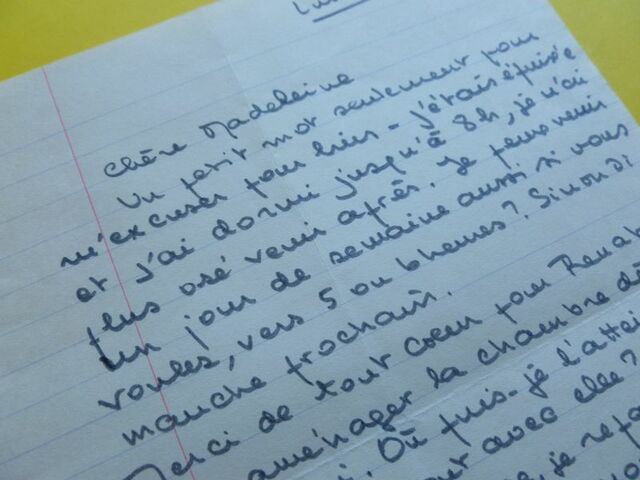 Lun
Chère Madeleine
Un petit mot seulement pour
m'excuser pour hier - j'étais épuisée
et j'ai dormi jusqu'à 8h, je n'ai
plus osé venir après. Je peux venir
un jour de semaine aussi si vous
voulez, vers 5 ou 6 heures? Sinon di
manche prochain.
Merci de tout coeur pour Renat
aménager la chambre de
i. Où puis-je l'attei
t avec elle?
je